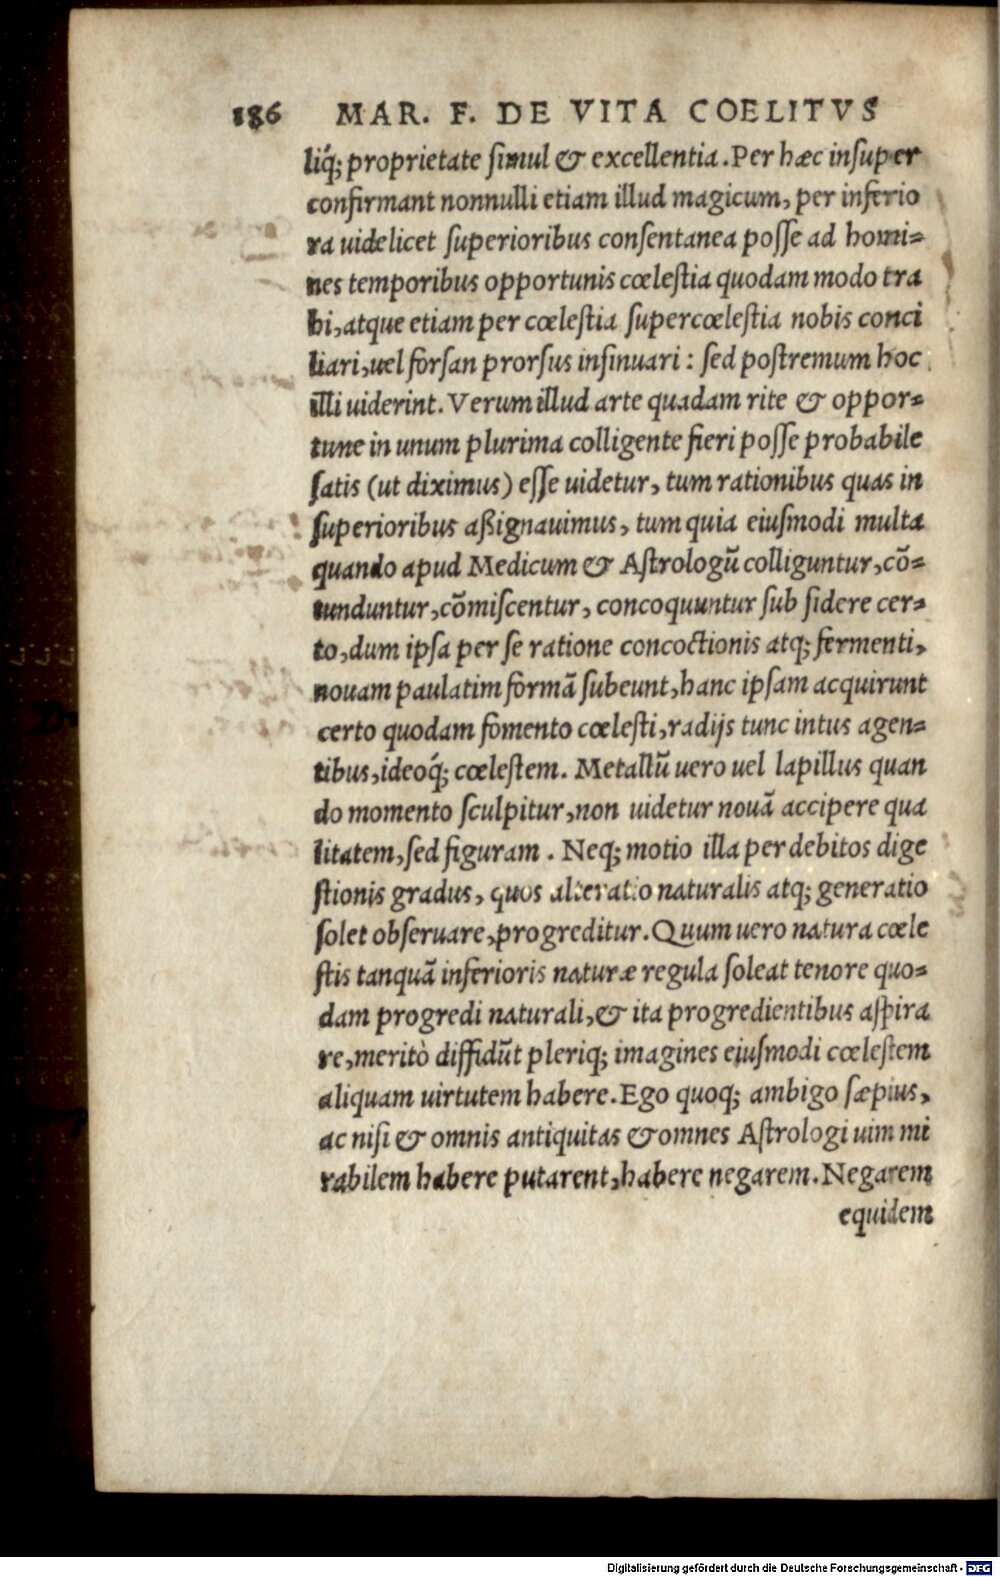 186 MAR. F. DE VITA COELITVS
liq́; proprietate ſimul & excellentia. Per hæc inſuper
confirmant nonnulli etiam illud magicum, per inferio
ra uidelicet ſuperioribus conſentanea poſſe ad homi=
nes temporibus opportunis cœleſtia quodam modo tra
hi, atque etiam per cœleſtia ſupercœleſtia nobis conci
liari, uel forſan prorſus inſinuari: ſed poſtremum hoc
illi uiderint. Verum illud arte quadam rite & oppor=
tune in unum plurima colligente fieri poſſe probabile
ſatis (ut diximus) eſſe uidetur, tum rationibus quas in
ſuperioribus aßignauimus, tum quia eiuſmodi multa
quando apud Medicum & Aſtrologū colliguntur, cō=
tunduntur, cōmiſcentur, concoquuntur ſub ſidere cer=
to, dum ipſa per ſe ratione concoctionis atq; fermenti,
nouam paulatim formā ſubeunt, hanc ipſam acquirunt
certo quodam fomento cœleſti, radijs tunc intus agen=
tibus, ideoq́; cœleſtem. Metallū uero uel lapillus quan
do momento ſculpitur, non uidetur nouā accipere qua
litatem, ſed figuram. Neq; motio illa per debitos dige
ſtionis gradus, quos alteratio naturalis atq; generatio
ſolet obſeruare, progreditur. Quum uero natura cœle
ſtis tanquā inferioris naturæ regula ſoleat tenore quo=
dam progredi naturali, & ita progredientibus aſpira
re, meritò diffidūt pleriq; imagines eiuſmodi cœleſtem
aliquam uirtutem habere. Ego quoq; ambigo ſæpius,
ac niſi & omnis antiquitas & omnes Aſtrologi uim mi
rabilem habere putarent, habere negarem. Negarem
equidem
Digitalisierung gefördert durch die Deutsche Forschungsgemeinschaft - DFG